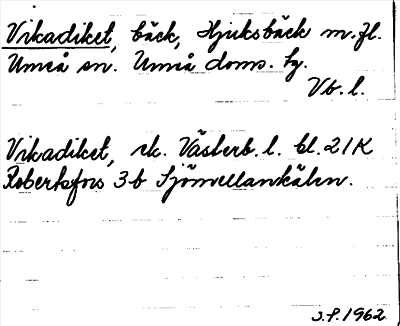 Vikadiket, bäck, Hjuksbäck m.fl.
Umeå sn. Umeå doms. hg.
Vb. l.
Vikadiket, ek. Västerb. l. bl. 21K
Robertsfors 3b Sjömellankälen.
J.P. 1962